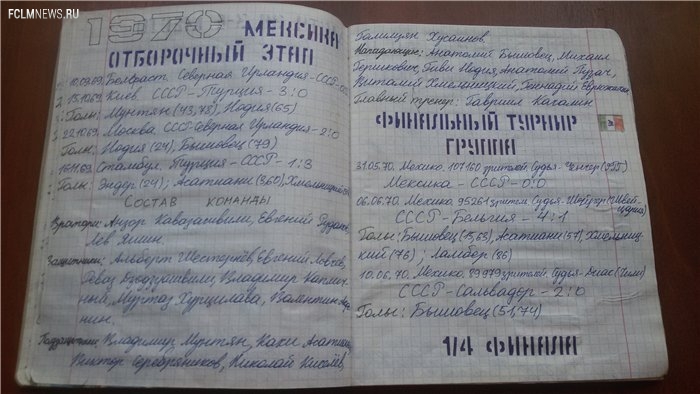 FCLMNEWS.RU
1970 МЕКСИКА
ОТБОРОЧНЫЙ ЭТАП
1. 10.09.69. Белфаст. Северная Ирландия-СССР-0:0
2. 15.10.69. Киев. СССР-Турция-3:0
Голы: Мунтян (43,78), Нодия (65)
3. 22.10.69. Москва. СССР-Северная Ирландия-2:0
Голы: Нодия (24), Бышовец (79)
16.11.69. Стамбул. Турция-СССР-1:3
Голы: Эндер (24); Асатиани, Хмельницкий
СОСТАВ КОМАНДЫ
Вратари: Анзор Кавазашвили, Евгений Рудаков,
Лев Яшин.
Защитники: Альберт Шестернёв, Евгений Ловчев,
Реваз Дзодзуашвили, Владимир Каплич-
ный, Муртаз Хурцилава, Валентин Афо-
нин.
Полузащитники: Владимир Мунтян, Кахи Асатиани,
Виктор Серебряников, Николай Киселёв,
Гилимзян Хусаинов.
Нападающие: Анатолий Бышовец, Михаил
Гершкович, Гиви Нодия, Анатолий Пузач,
Виталий Хмельницкий, Геннадий Еврюжихин
Главный тренер: Гавриил Качалин.
ФИНАЛЬНЫЙ ТУРНИР
ГРУППА
31.05.70. Мехико. 107160 зрителей. Судья-Ченчер (ФРГ)
Мексика-СССР-0:0
06.06.70. Мехико. 95261 зрител. Судья-Шойрер (Швей-
цария)
СССР-Бельгия-4:1
Голы: Бышовец (15,63), Асатиани (57), Хмельниц-
кий (76); Ламбер (86)
10.06.70. Мехико. 89979 зрителей. Судья-Диас (Чили)
СССР-Сальвадор-2:0
Голы: Бышовец (51,74)
1/4 ФИНАЛА